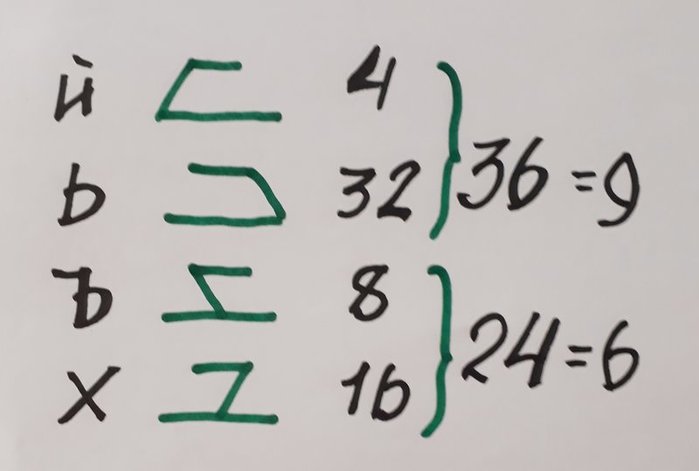 й 4
ь 32 } 36 = 9
ъ 8
х 16 } 24 = 6